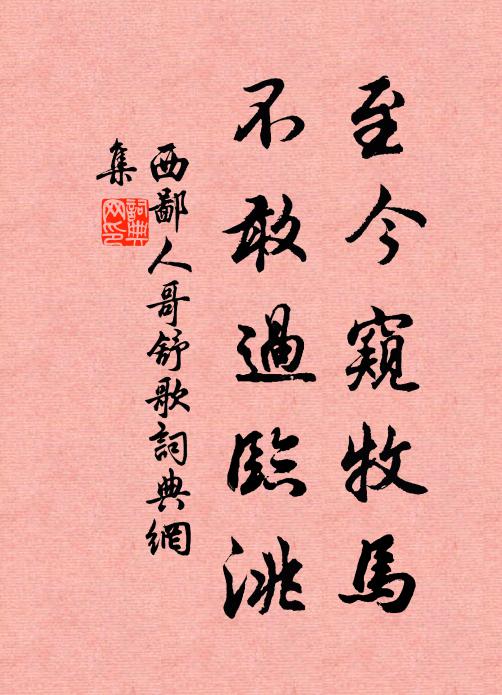 至今窺牧馬
不敢過臨洮
西鄙人哥舒歌詞典網
集
詞典
网印